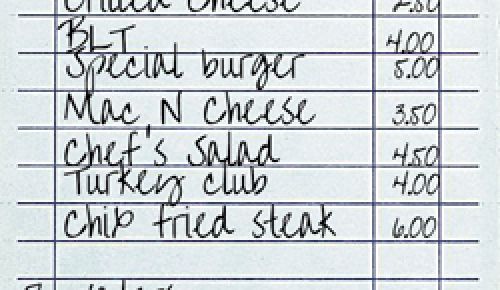 Grilled Cheese 2.50
BLT 4.00
Special burger 5.00
Mac N Cheese 3.50
Chef's Salad 4.50
Turkey club 4.00
Chip fried steak 6.00